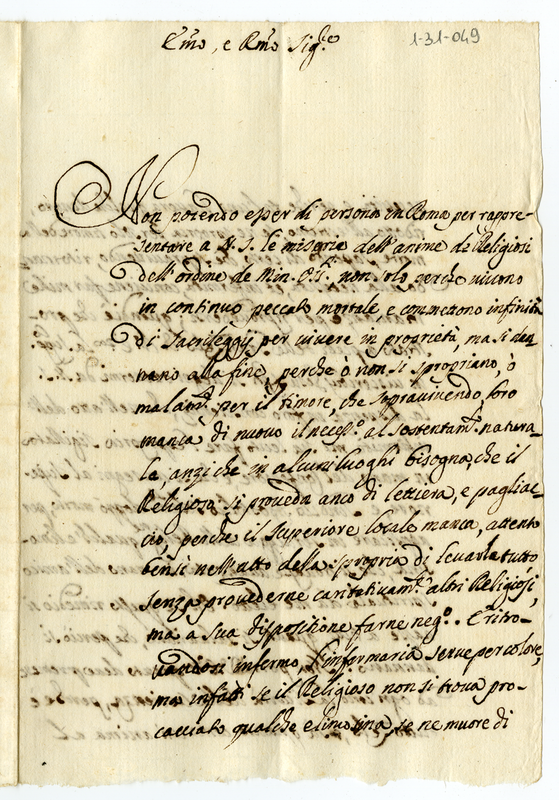 Em̃o, e Rm̃o Sig.re
1-31-049
Non potendo esser di persona in Roma per rappre-
sentare a N. S. le miserie dell'anime de Religiosi
dell'ordine de Min. non solo perche vivono
in continuo peccato mortale, e commettono infiniti
di Sacrileggij per vivere in proprietà, ma si dan-
nano alla fine, perche ò non si spropriano, ò
malam.te per il timore, che sopravivendo, loro
manca di nuovo il necess.o al sostentam.to natura-
le, anzi che in alcuni luoghi bisogna, che il
Religioso si proveda anco di lettiera, e pagliac-
cio, perche il Superiore locale manca, attento
bensì nell'atto della spropria di levarla tutto
senza provederne caritativam.te altri Religiosi,
ma a sua dispositione farne neg.o. E ritro-
vandosi infermo, l'infermaria serve per colore,
ma infatti se il Religioso non si trova pro-
cacciato qualche elimosina, se ne muore di